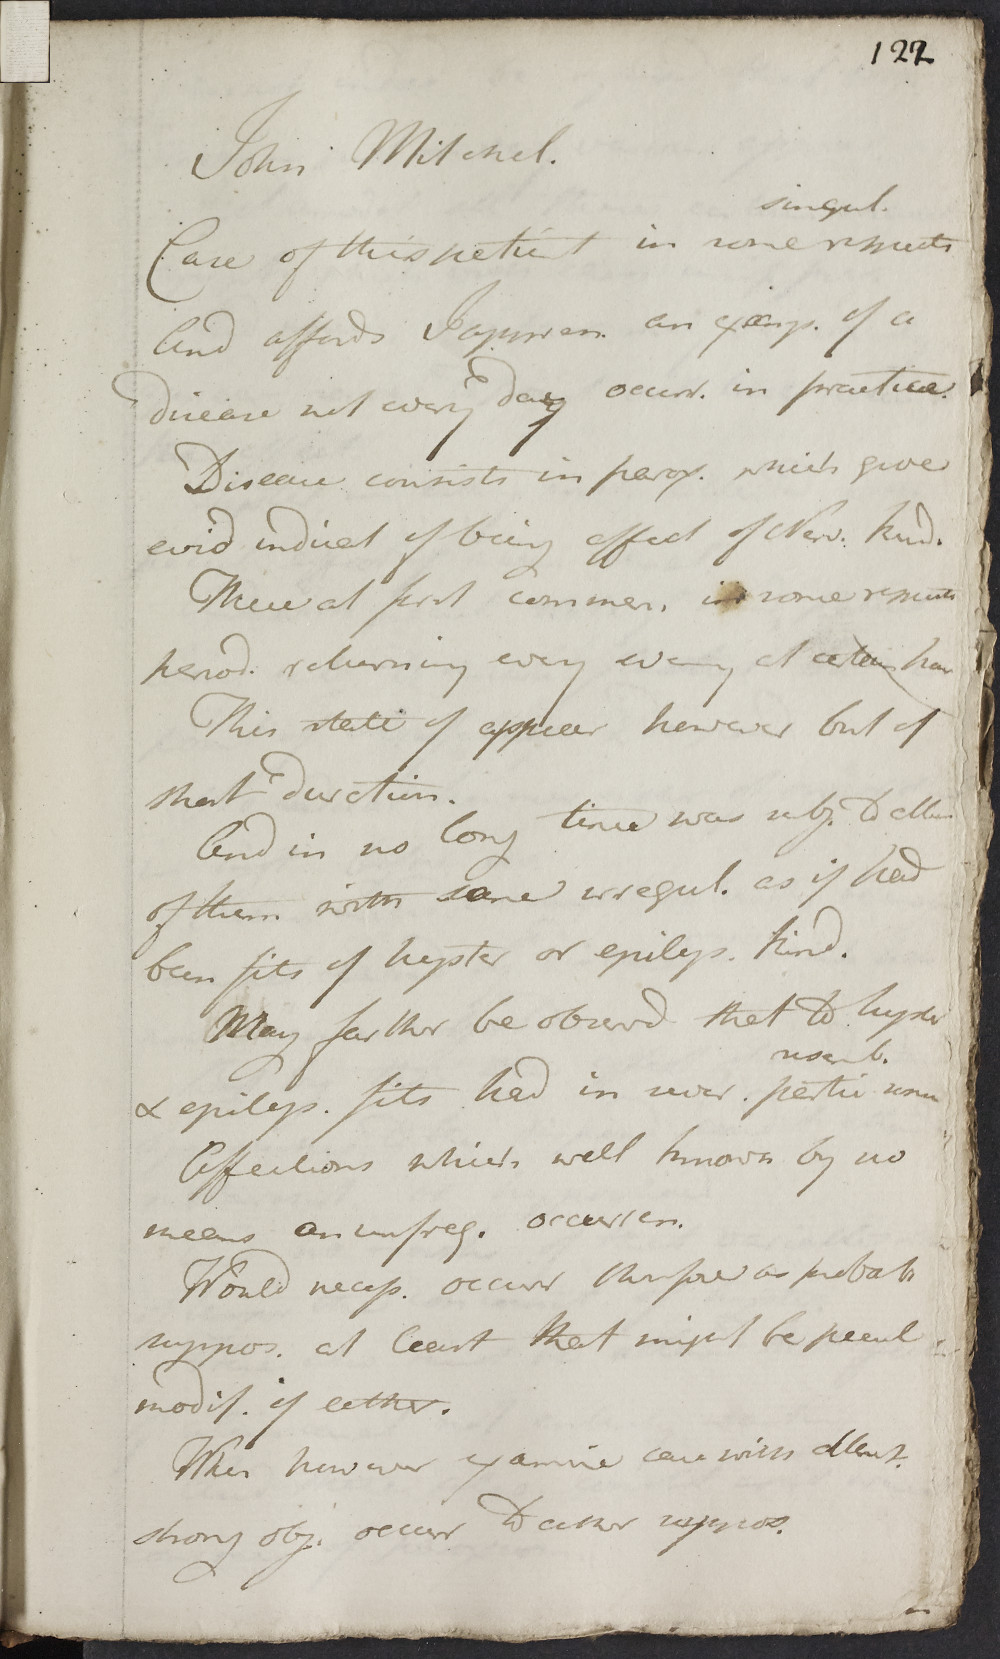 122
John Mitchel.
singul.
Case of this patient in some respects
And affords I apprehen. an examp. of a
disease not every day occurr. in practice.
Disease consists in parox. which give
evid indicat of being affect of Nerv. kind.
These at first commen. in some respects
period. returning every evening at certain hour
This state of appear however but of
short duration.
And in no long time was subj. to attac
of them with some irregul. as if had
been fits of hyster or epilep. kind.
May farther be observd that to hyster
resemb.
& epilep. fits had in sever. partic
Affections which well known by no
means an unfreq. occurren.
Would necess. occur therefore as probab
suppos. at least that might be pecul
modif. of either.
When however examine case with attent.
strong obj. occurr to either suppos.